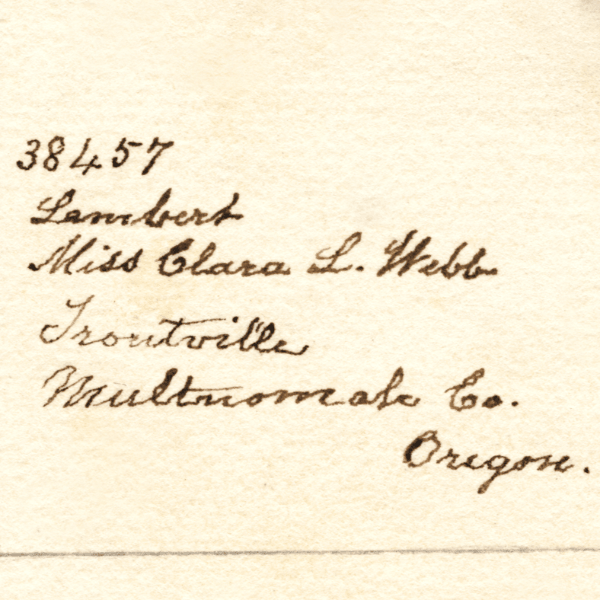 38457
Lambert
Miss Clara L. Webb
Troutville
Multnomah Co.
Oregon.